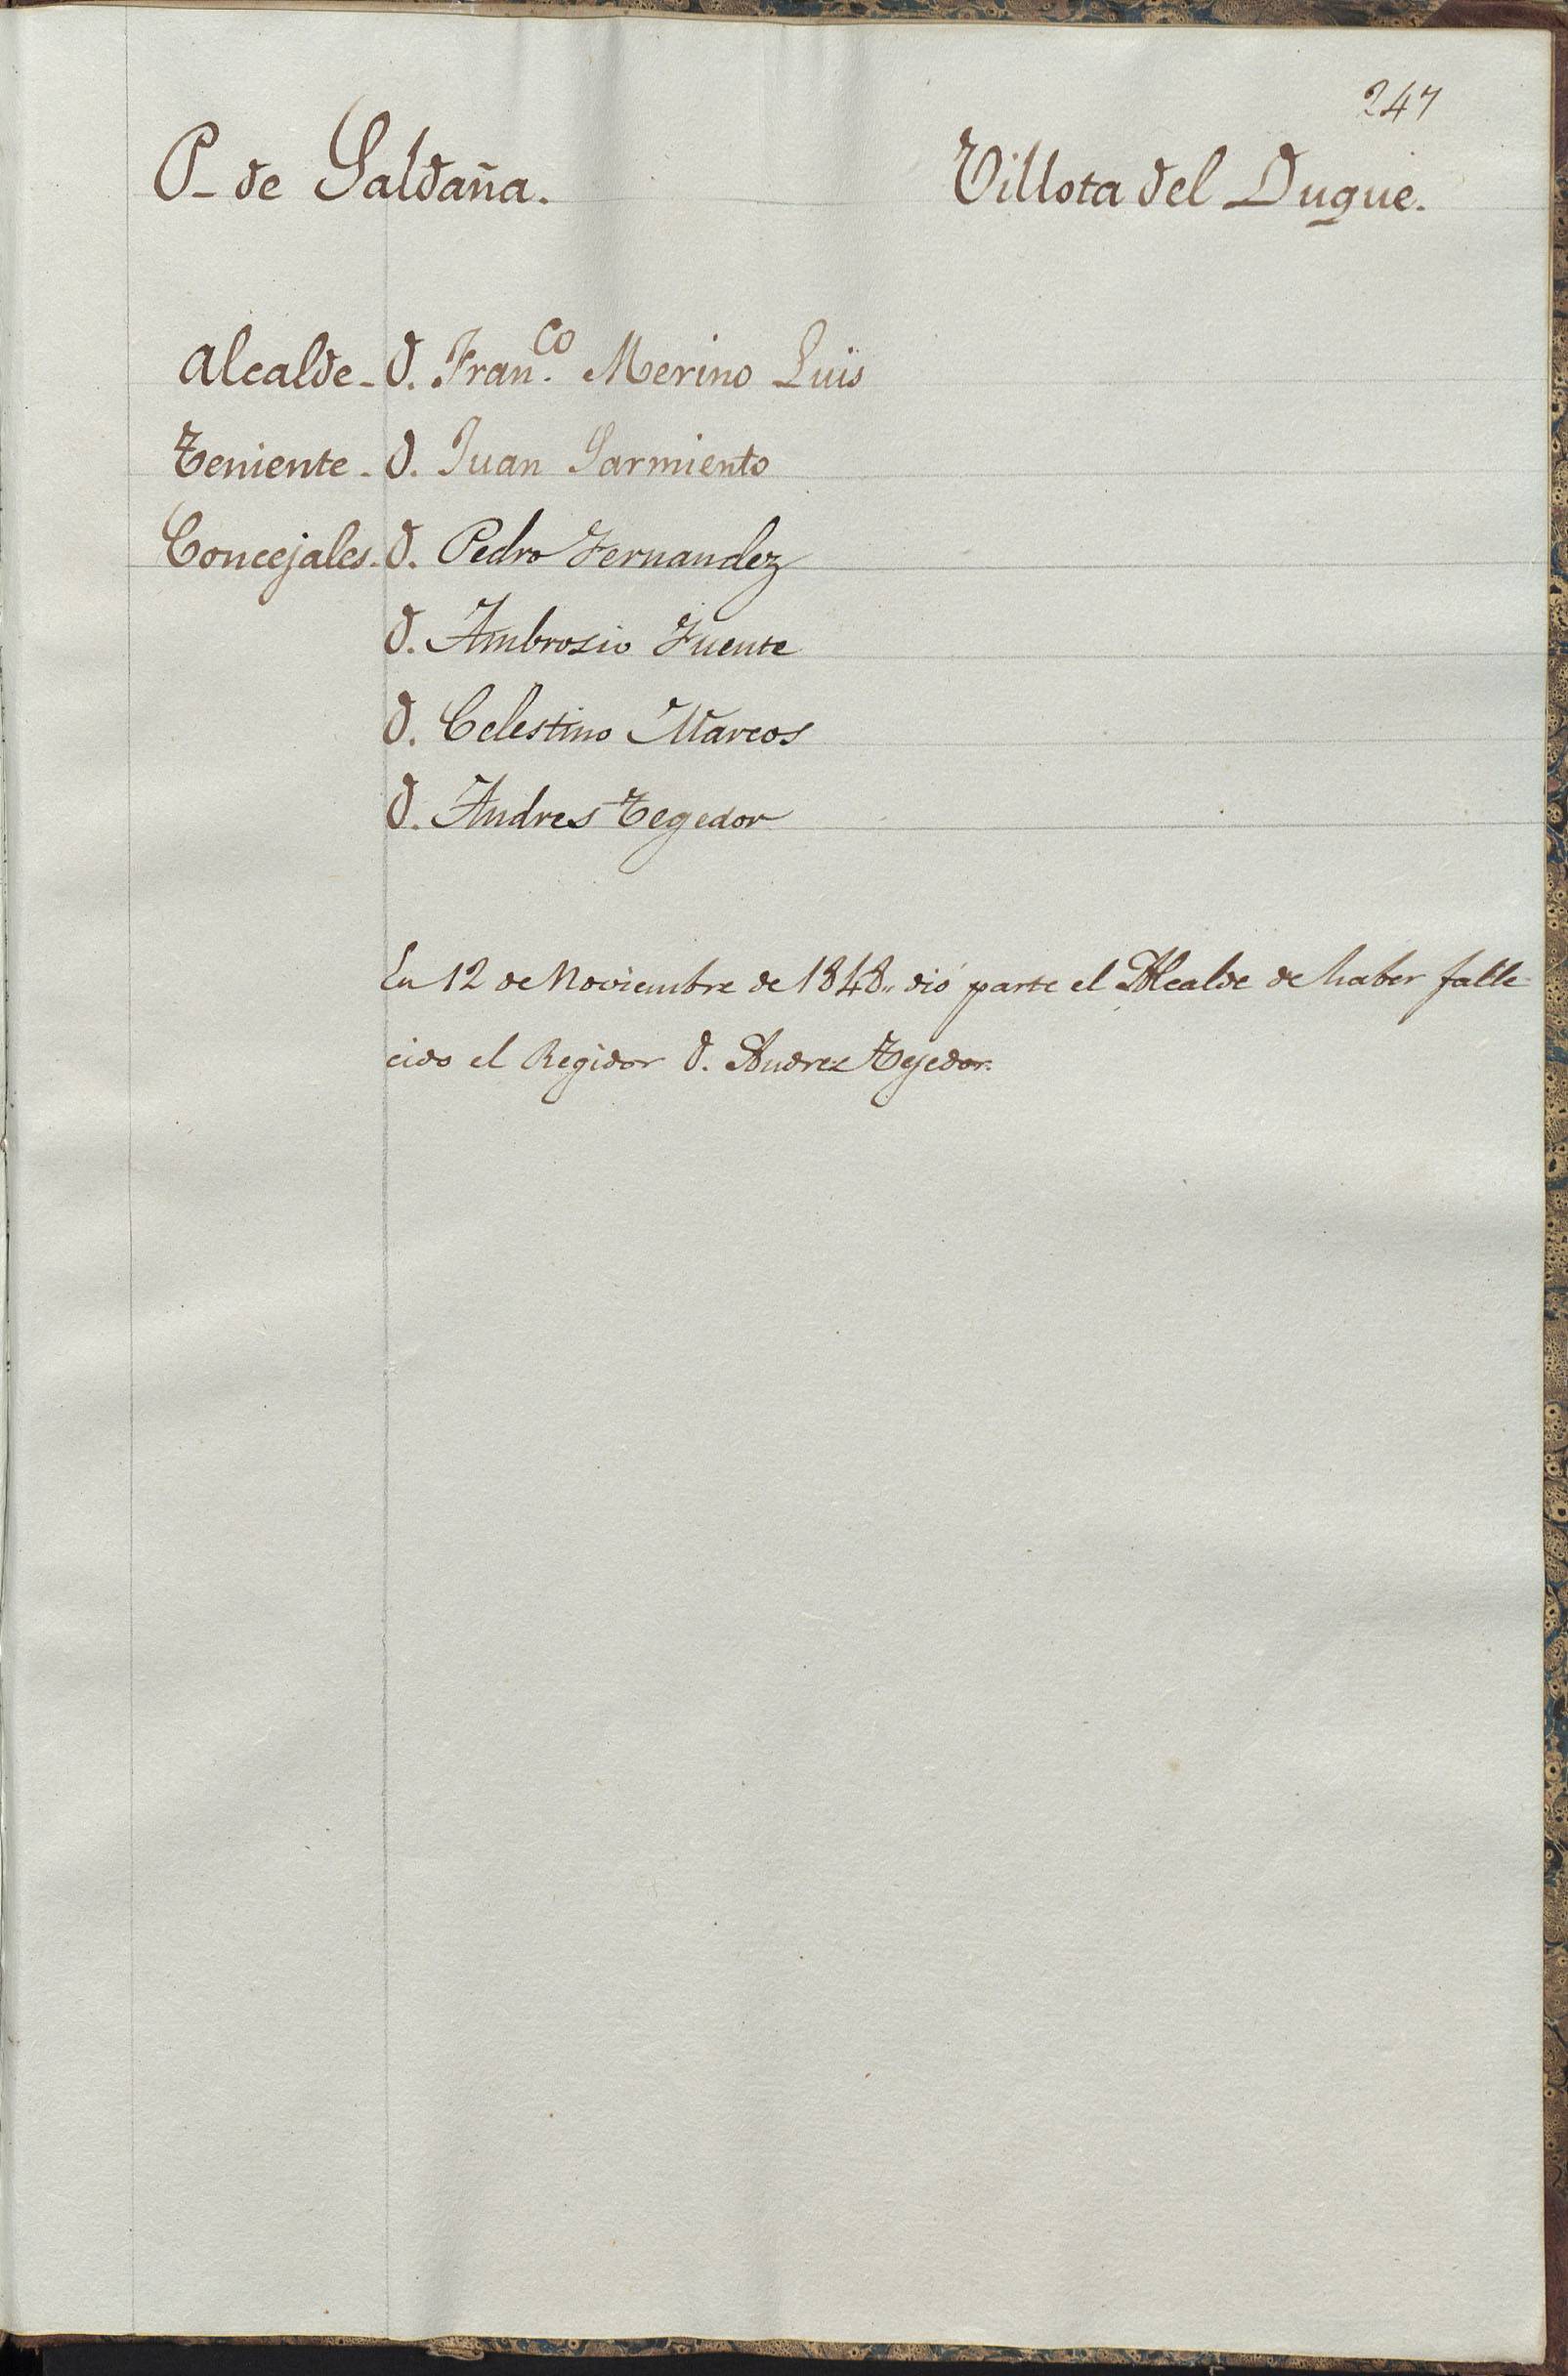 247
P- de Saldaña. Villota del Duque.
Alcalde - D. Fran.co Merino Luis
Teniente - D. Juan Sarmiento
Concejales - D. Pedro Fernandez
D. Ambrosio Fuente
D. Celestino Marcos
D. Andres Tegedor
En 12 de Noviembre de 1848,, dió parte el Alcalde de haber falle-
cido el Regidor D. Andrez Tejedor.